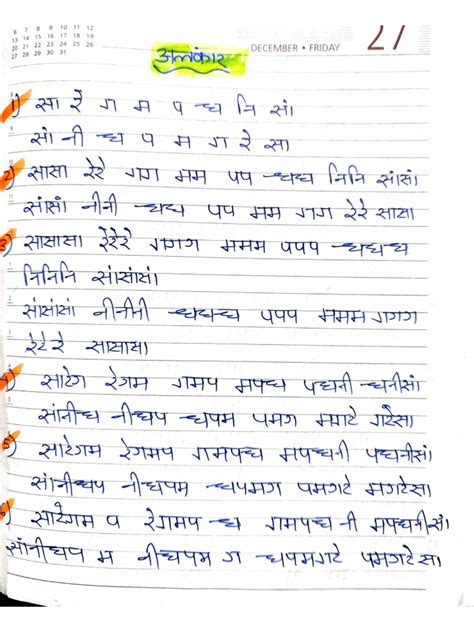 6 7 8 9 10 11 12
13 14 15 16 17 18 19
20 21 22 23 24 25 26
27 28 29 30 31
DECEMBER • FRIDAY 27
अलंकार
1) सा रे ग म प ध नि सां
सां नी ध प म ग रे सा
2) सासा रेरे गग मम पप धध निनि सांसां
सांसां नीनी धध पप मम गग रेरे सासा
3) सासासा रेरेरे गगग ममम पपप धधध
निनिनि सांसांसां
सांसांसां नीनीनी धधध पपप ममम गगग
रेरेरे सासासा
4) सारेग रेगम गमप मपध पधनी धनीसां
सांनीध नीधप धपम पमग मगरे गरेसा
5) सारेगम रेगमप गमपध मपधनी पधनीसां
सांनीधप नीधपम धपमग पमगरे मगरेसा
6) सारेगम प रेगमप ध गमपध नी मपधनीसां
सांनीधप म नीधपम ग धपमगरे पमगरेसा